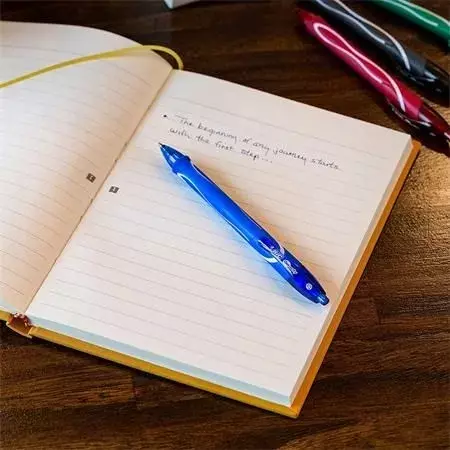 • The beginning of any journey starts
with the first step....
BIC